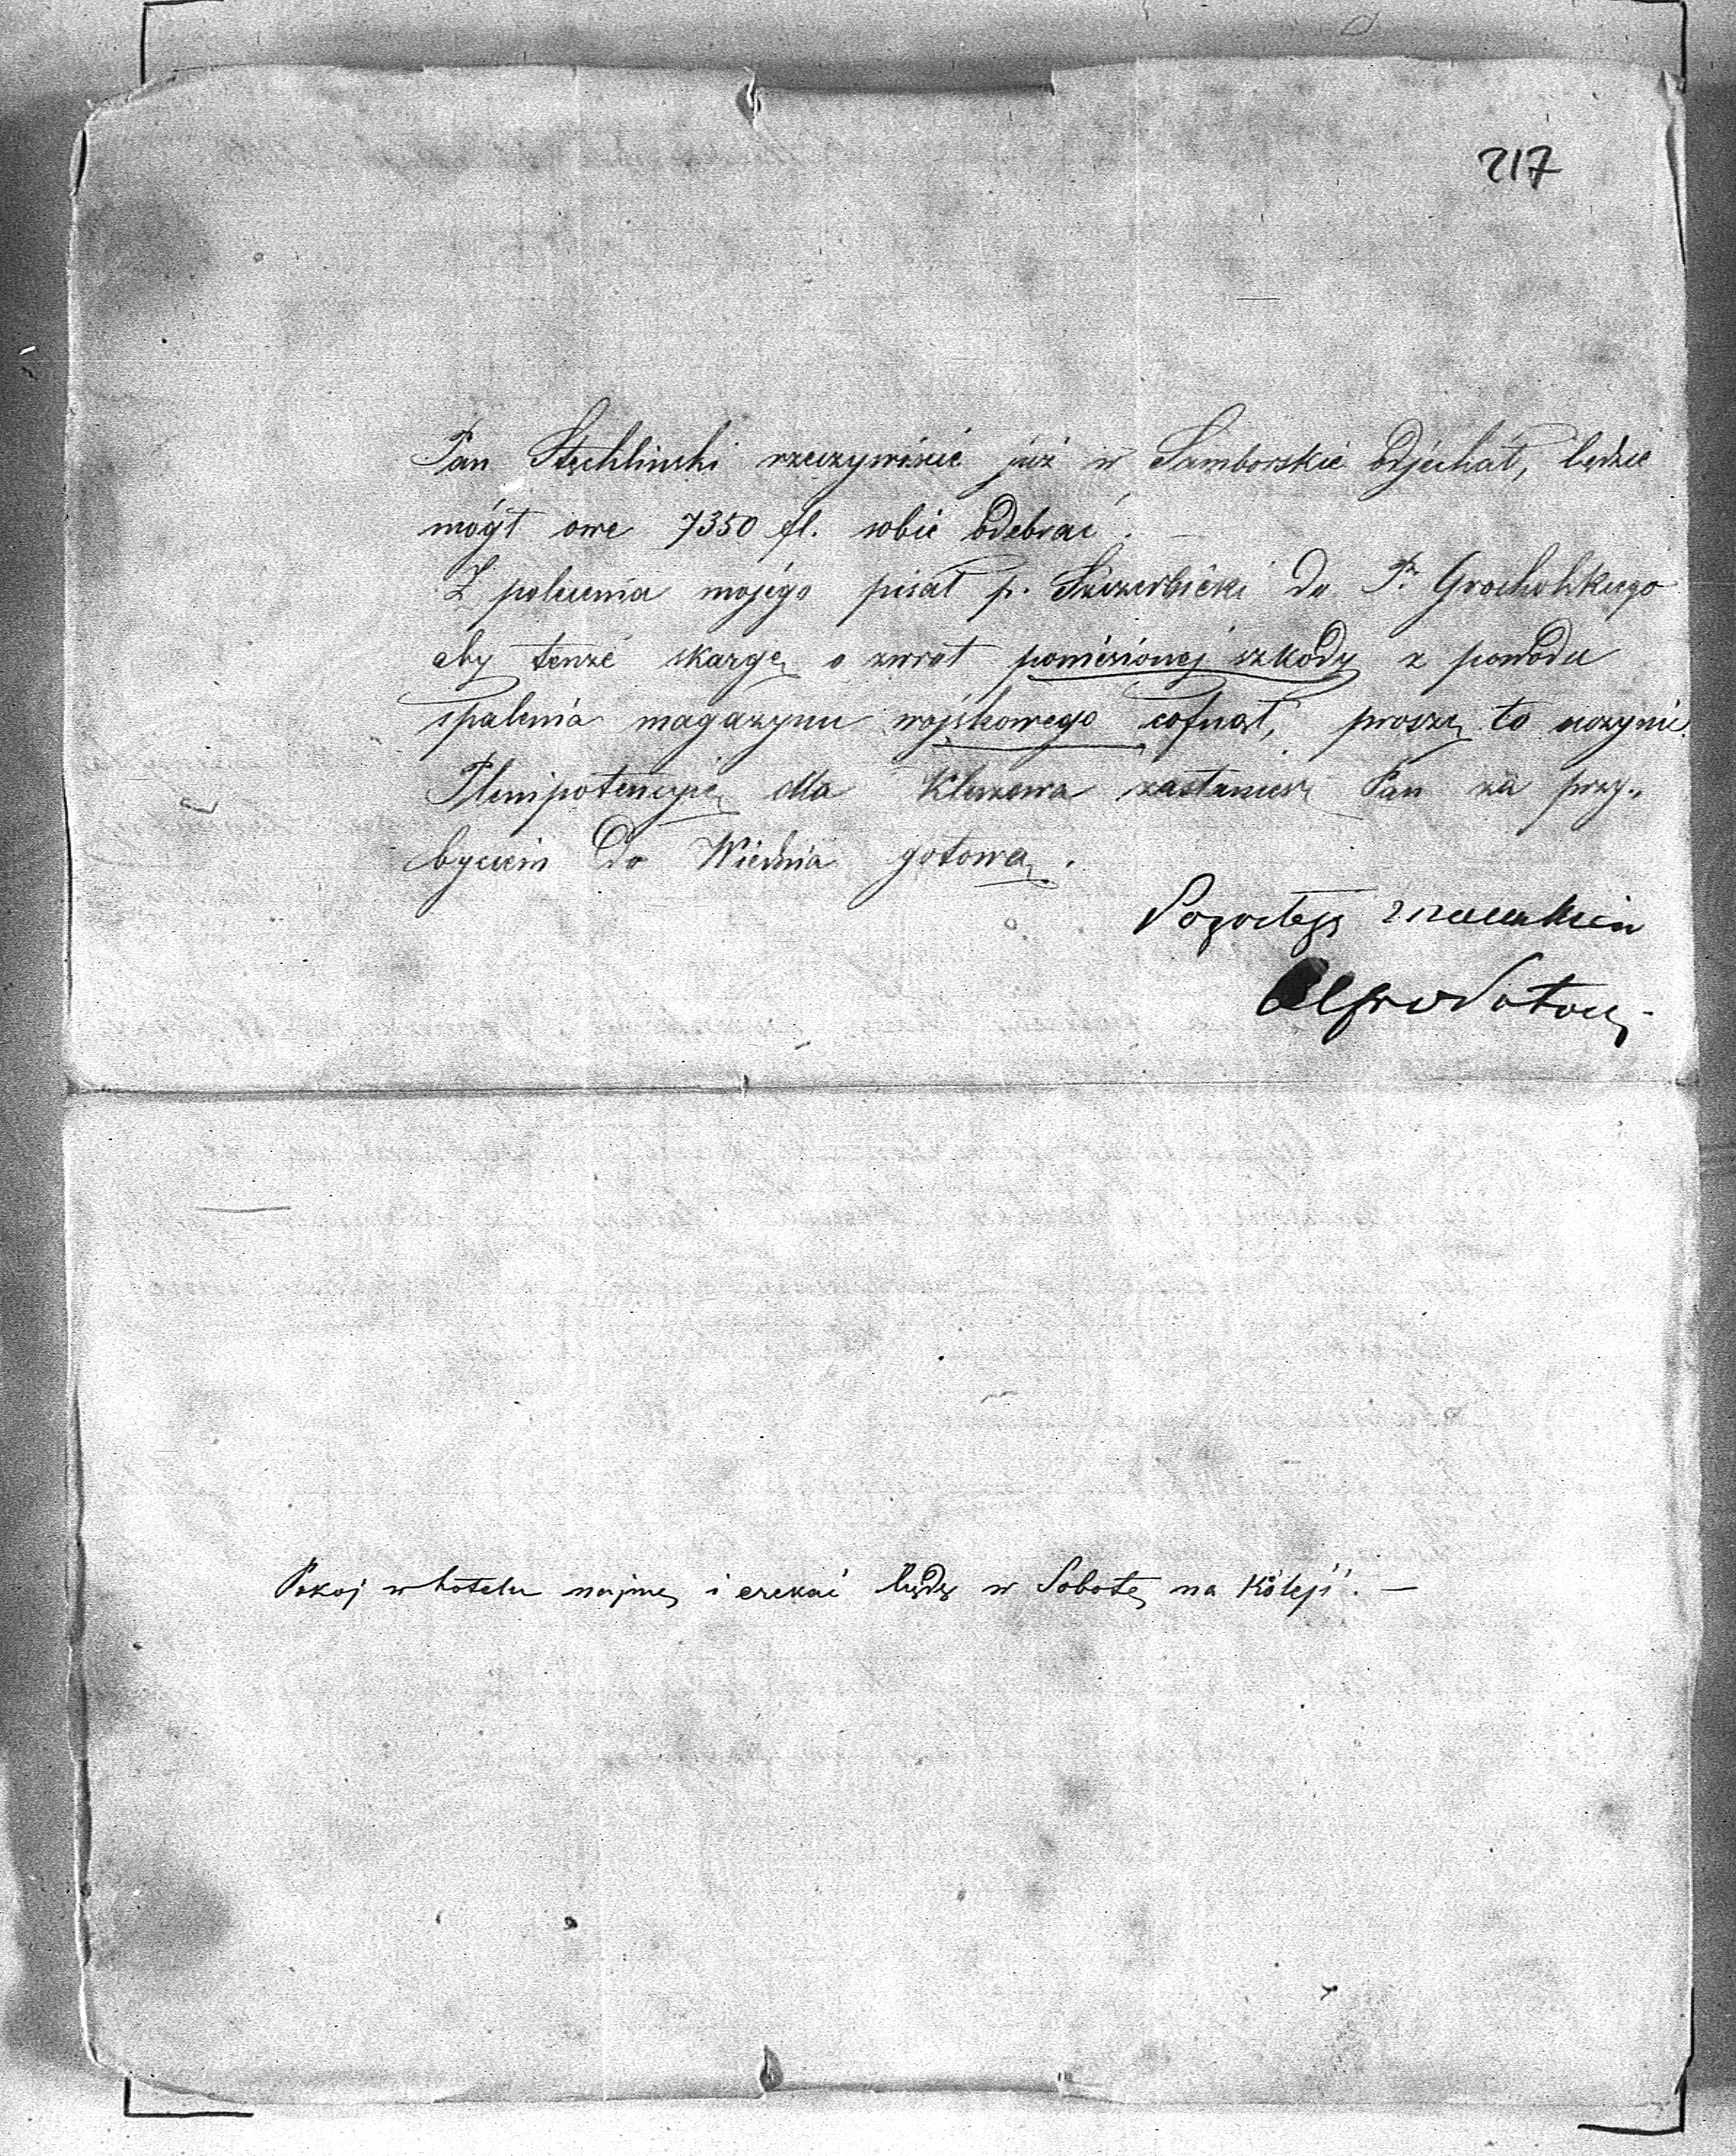 217
Pan Stęchlinski rzeczywiście już w Samborskie odjechał, będzie
mógł owe 7350 fl. sobie odebrać.
Z polecenia mojego pisał p. Szczerbicki do P. Grocholskiego
aby tenże skargę o zwrot poniesionej szkody z powodu
spalenia magazynu wojskowego cofnął, proszę to uczynić.
Plenipotencyię dla Kluzowa zastaniesz Pan za przy„
byciem do Wiednia gotową.
Pozostaję z szacunkiem
Alfred Potocki
Pokoj w hotelu najmę i czekać będę w Sobotę na Koleji. —